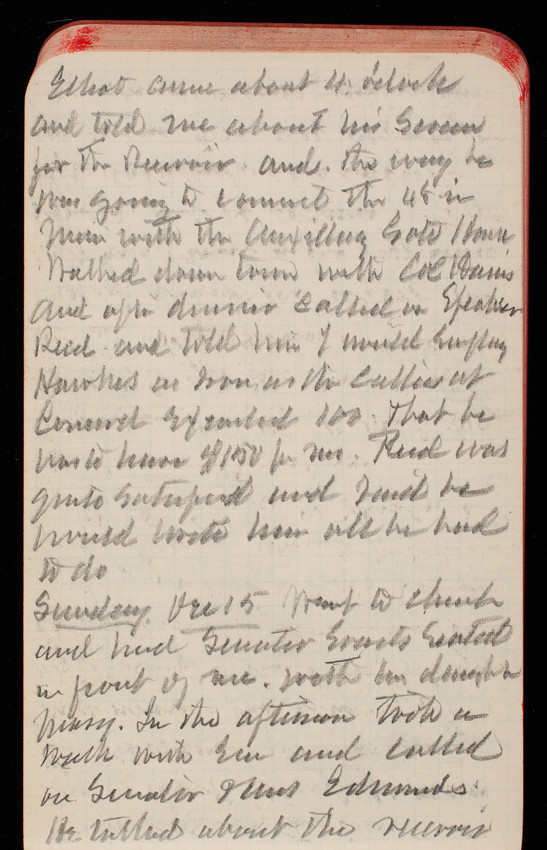 Elliot came about 4 o'clock
and told me about his Screen
for the Reservoir and the way he
was going to connect the 48 in
Main with the Auxiliary Gate House
Walked down town with Col
and after dinner called on Speaker
Reed and told him I would Employ
Hawkes as soon as the at
Concord Exceeded 100. That he
was to have $150 per mo. Reed was
quite Satisfied and said he
would write him all he had
to do
Sunday Dec 15 Went to church
and had Senator Evarts Seated
in front of me. with his daughter
Mary. In the afternoon took a
walk with and called
on Senator Edmunds.
He talked about the reservoir